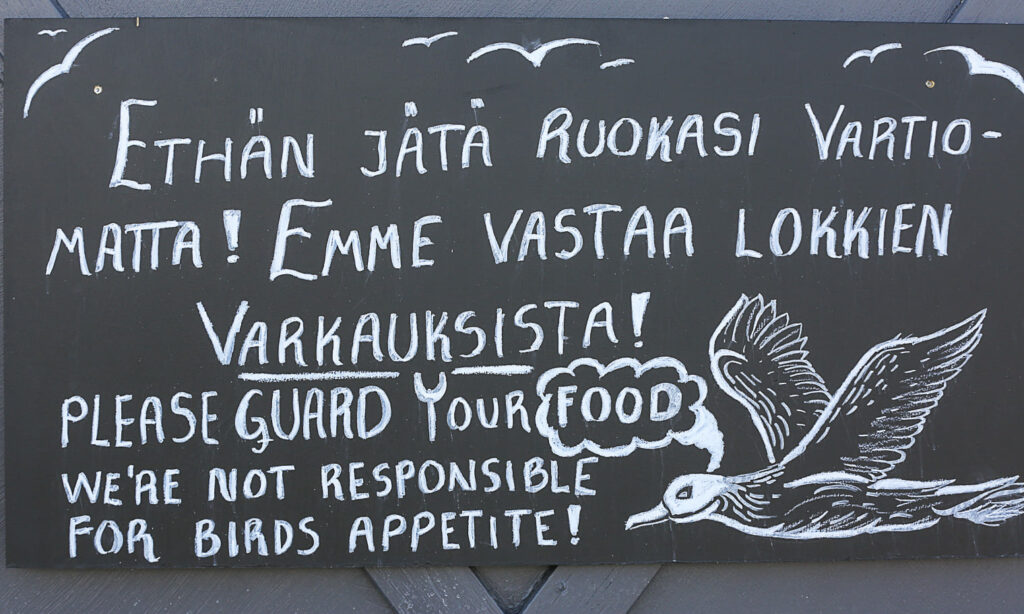 ETHÄN JÄTÄ RUOKASI VARTIO-
MATTA! EMME VASTAA LOKKIEN
VARKAUKSISTA!
PLEASE GUARD YOUR FOOD
WE'RE NOT RESPONSIBLE
FOR BIRDS APPETITE!